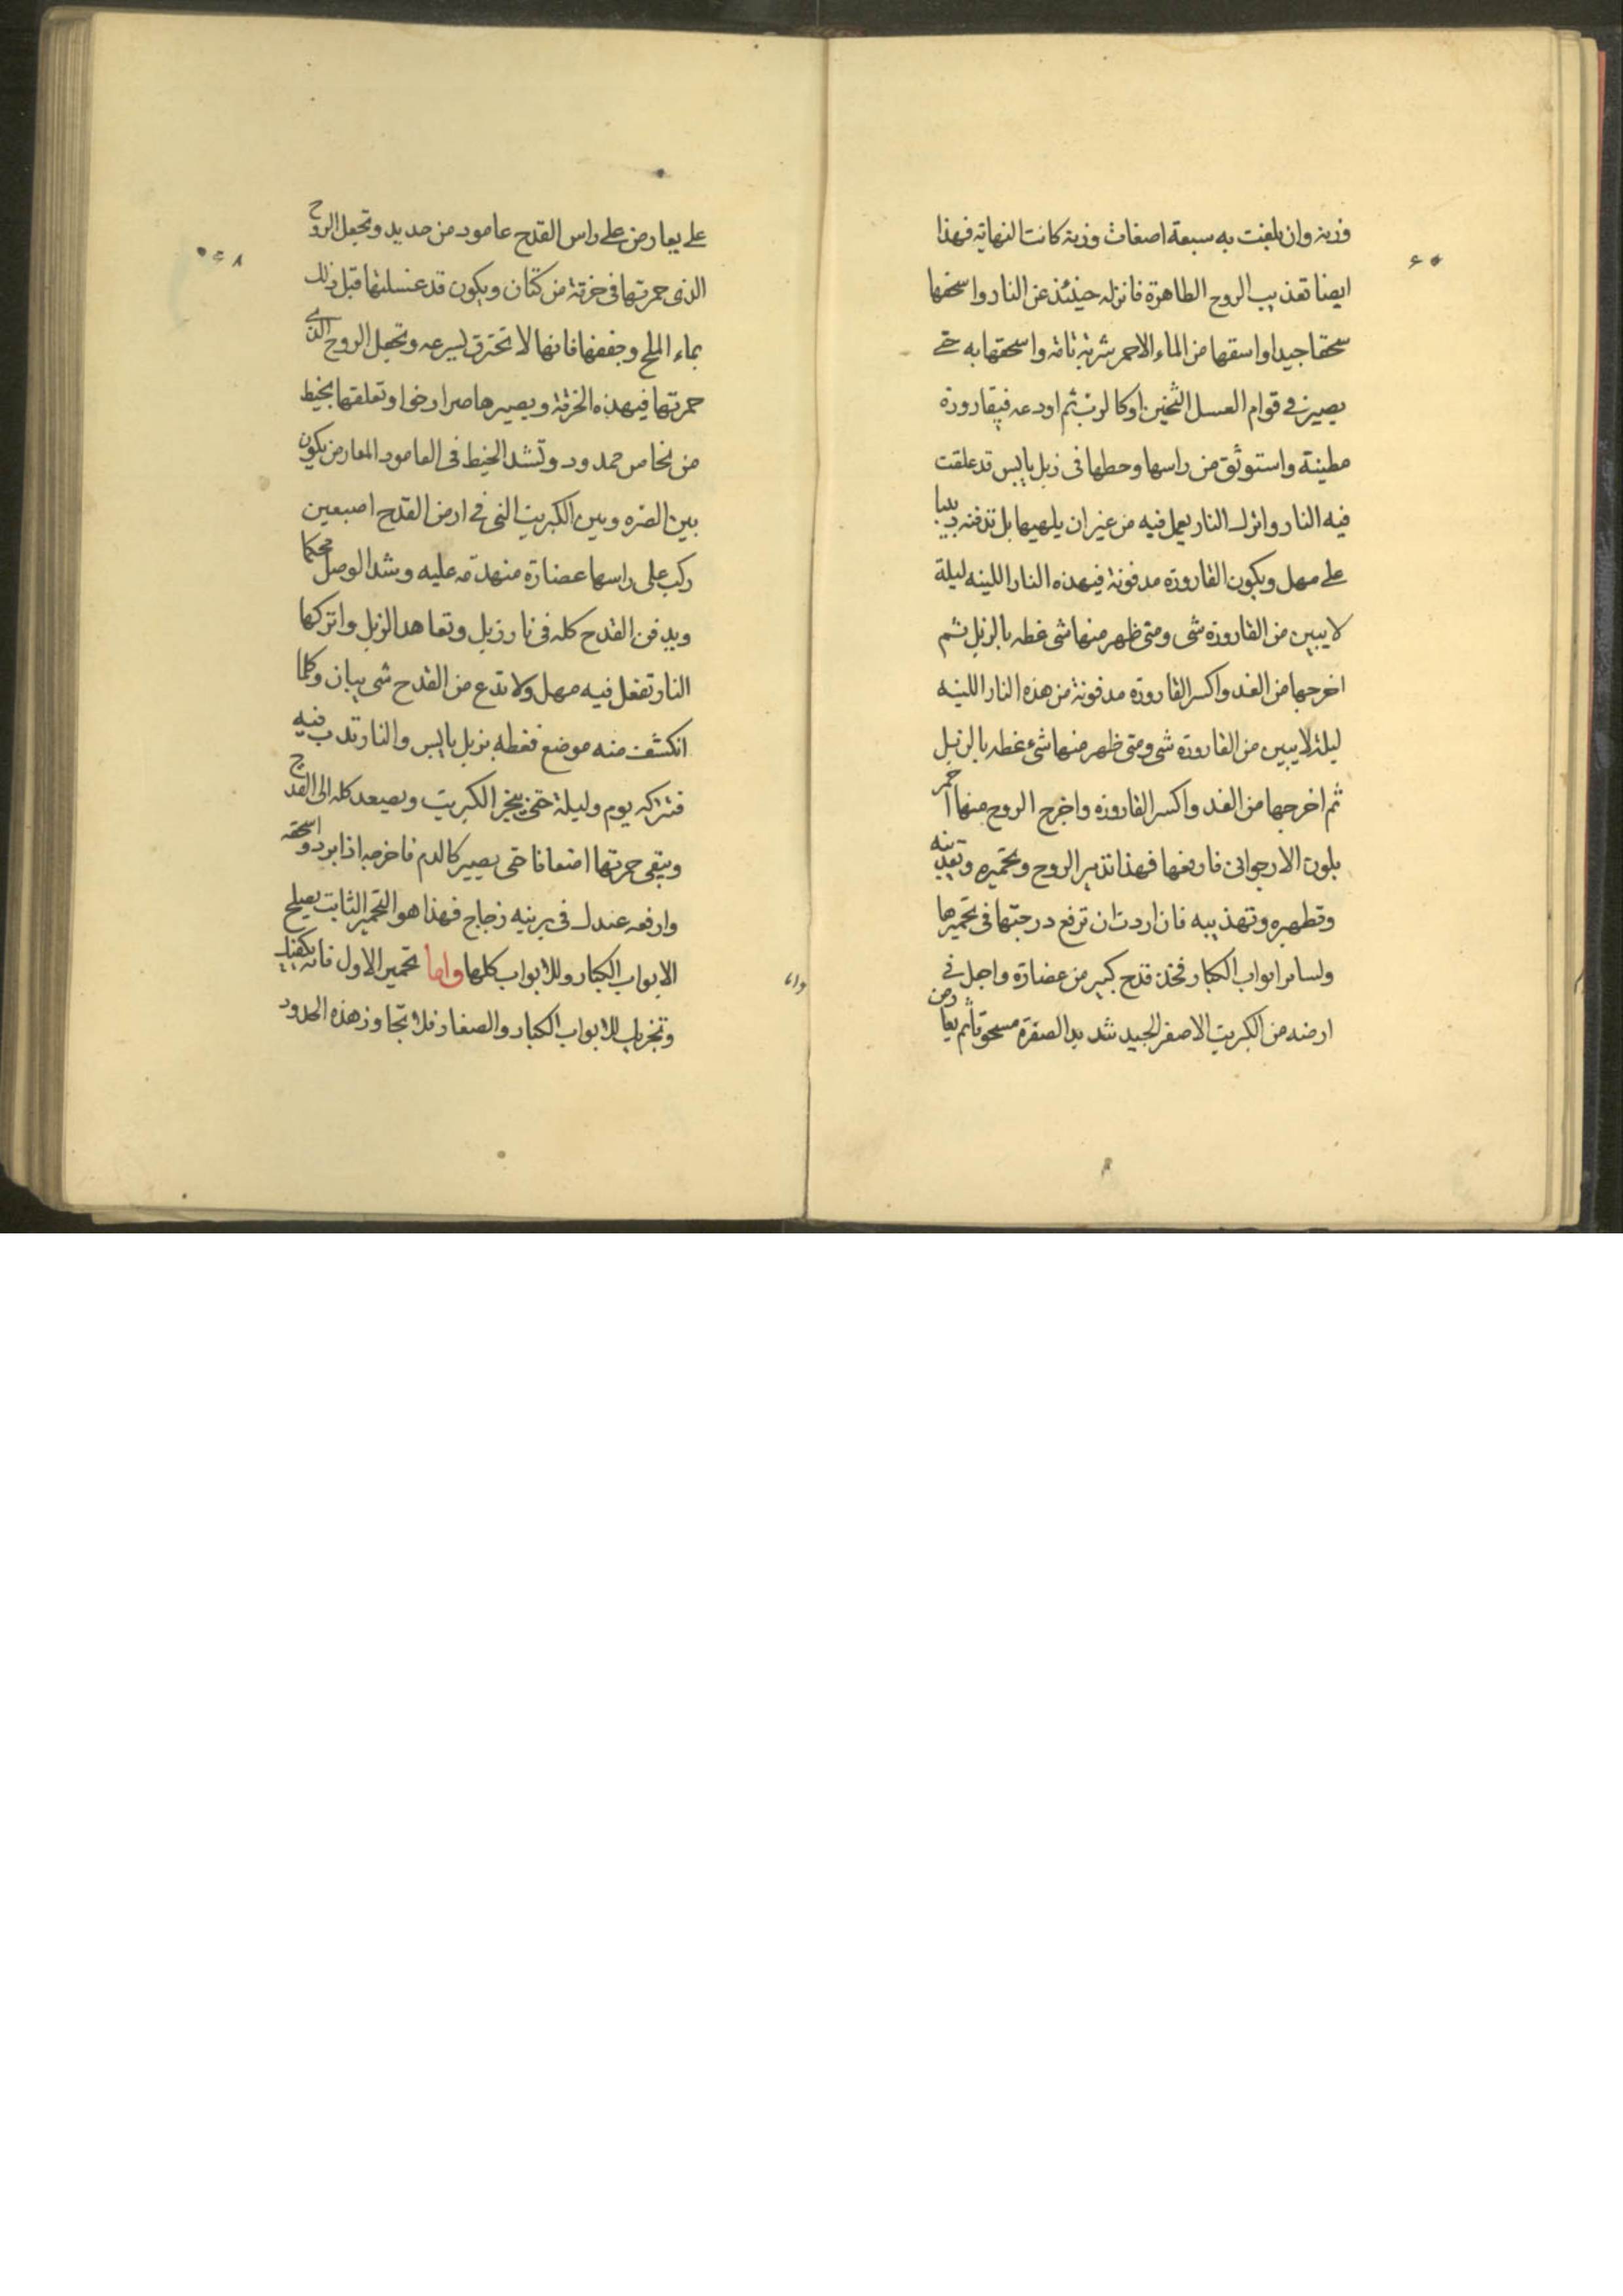 وزنه وان بلغت به سبعة اضعاف وزنه كانت النهاية فهذا
ايضا تهذيب الروح الطاهرة فانزله حينئذ عن النار واسحقها
سحقا جيدا واسقها من الماء الاحمر شربة تامة واسحقها به حتى
يصير في قوام العسل الثخين اوكالرب ثم اودعه في قارورة
مطينة واستوثق من راسها وحطها فى زبل يابس قد علقت
فيه النار واترك النار يعمل فيه من غير ان يلهبها بل تدفنه دبيبا
على مهل ويكون القارورة مدفونة في هذه النار اللينه ليلة
لا يبين من القارورة شى ومتى ظهر منها شى غطه بالزبل ثم
اخرجها من الغد واكسر القارورة مدفونة من هذه النار اللينه
ليلة لا يبين من القارورة شى ومتى ظهر منها شئ غطه بالزبل
ثم اخرجها من الغد واكسر القاروره واخرج الروح منها احمر
بلون الارجوانى فارفعها فهذا تدبير الروح وتحميره
وتطهيره وتهذيبه فان اردت ان ترفع درجتها فى تحميرها
ولساير ابواب الكبار فخذ قدح كبير من غضارة واجعل فى
ارضه من الكبريت الاصفر الجيد شديد الصفرة مسحوقا ثم يعارض
وا،،
٠٤٨
على يعارض على راس القدح عامود من حديد وتجعل الروح
الذى حمرتها فى خرقة من كتان ويكون قد غسلتها قبل ذلك
بماء الملح وجففها فانها لا تحترق بسرعه وتجعل الروح الذى
حمرتها في هذه الخرقة ويصيرها صرا رخوا وتعلقها بخيط
من نحاس ممدود وتشد الخيط فى العامود المعارض يكون
بين الصره وبين الكبريت التى في ارض القدح اصبعين
ركب على راسها غضارة منهدمه عليه وشد الوصل محكما
ويدفن القدح كله فى نار زبل وتعاهد الزبل واتركها
النار تفعل فيه مهل ولا تدع من القدح شى يبان وكلما
انكشف منه موضع فغطه بزبل يابس والنار تدب فيه
فتتركه يوم وليلة حتى يبخر الكبريت ويصعد كله الى القدح
ويبقى حمرتها اضعافا حتى يصير كالدم فاخرجه اذا برد واسحقه
وارفعه عندك فى برنيه زجاج فهذا هو التحمير الثابت يصلح
الابواب الكبار وللابواب كلها واما تحمير الاول فانه يكفيك
وتجزيك للابواب الكبار والصغار فلا تتجاوز هذه الحدود